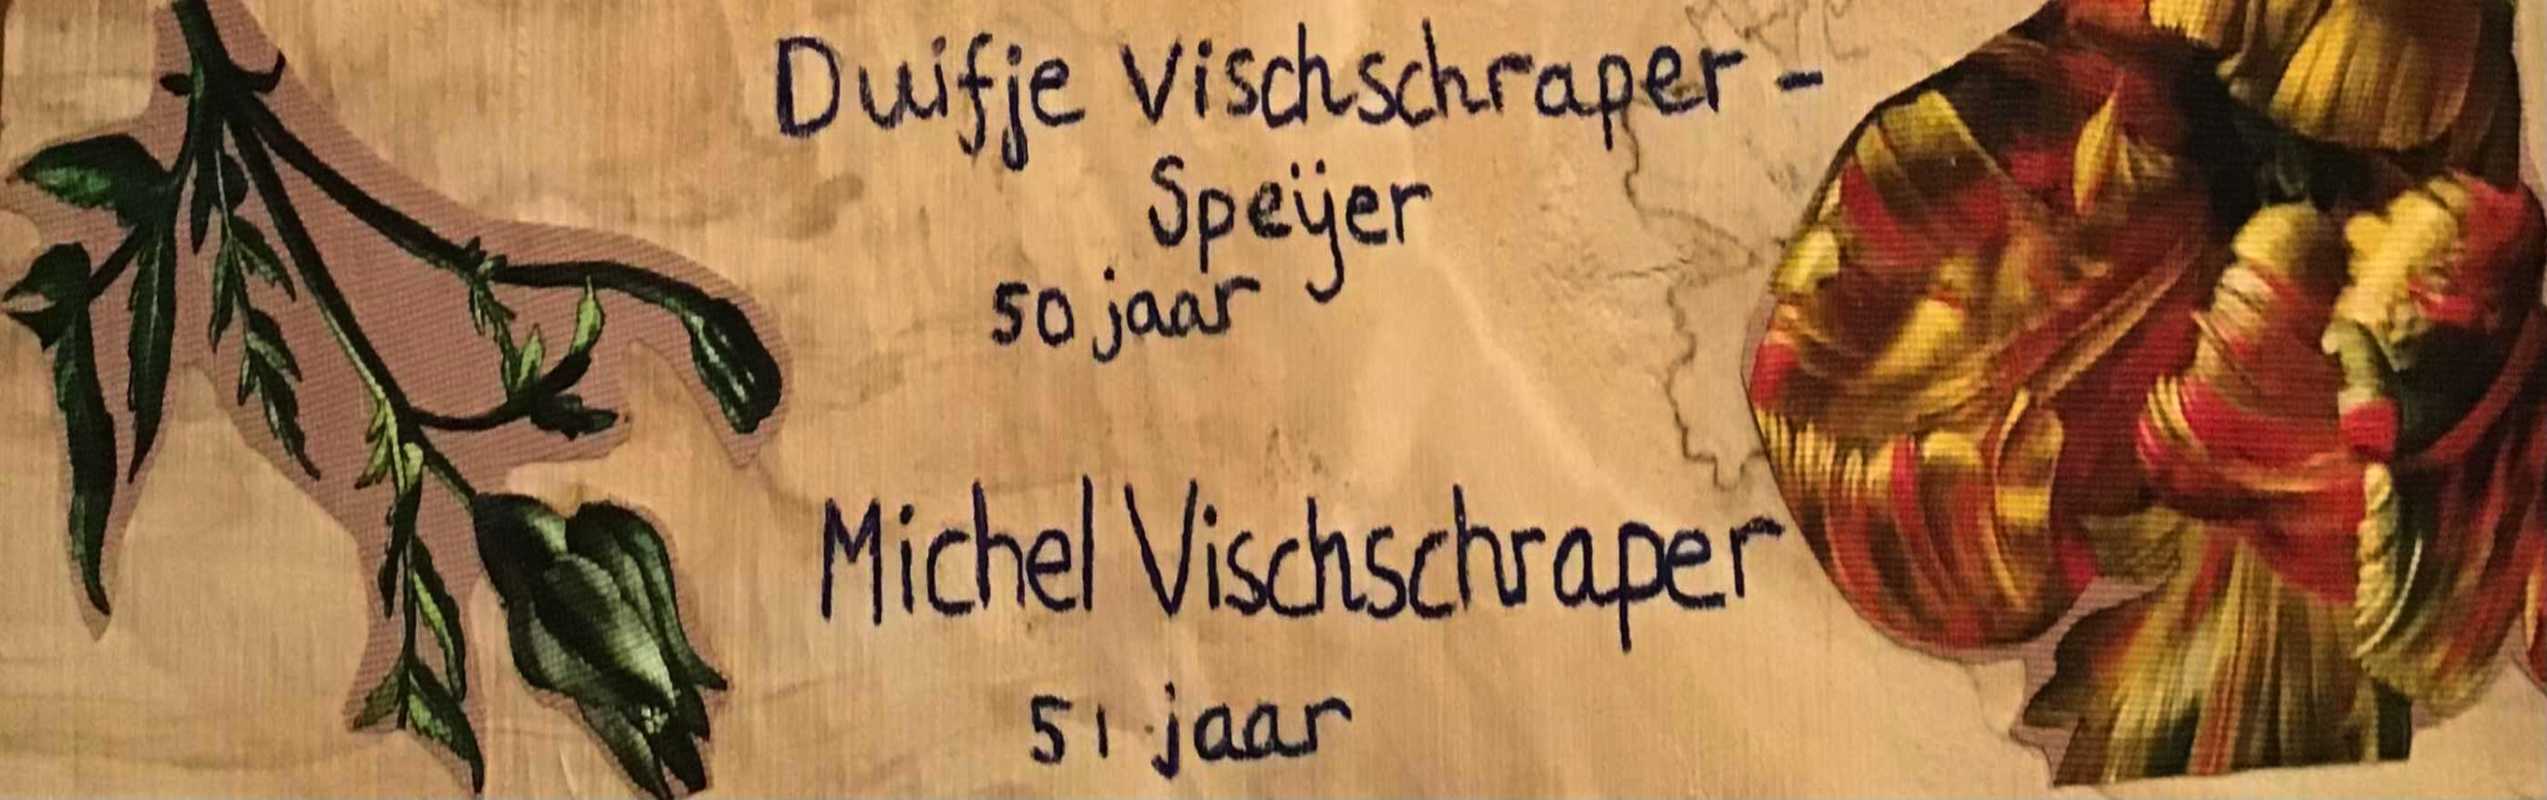 Duifje Vischschraper-
Speÿer
50 jaar
Michel Vischschraper
51 jaar